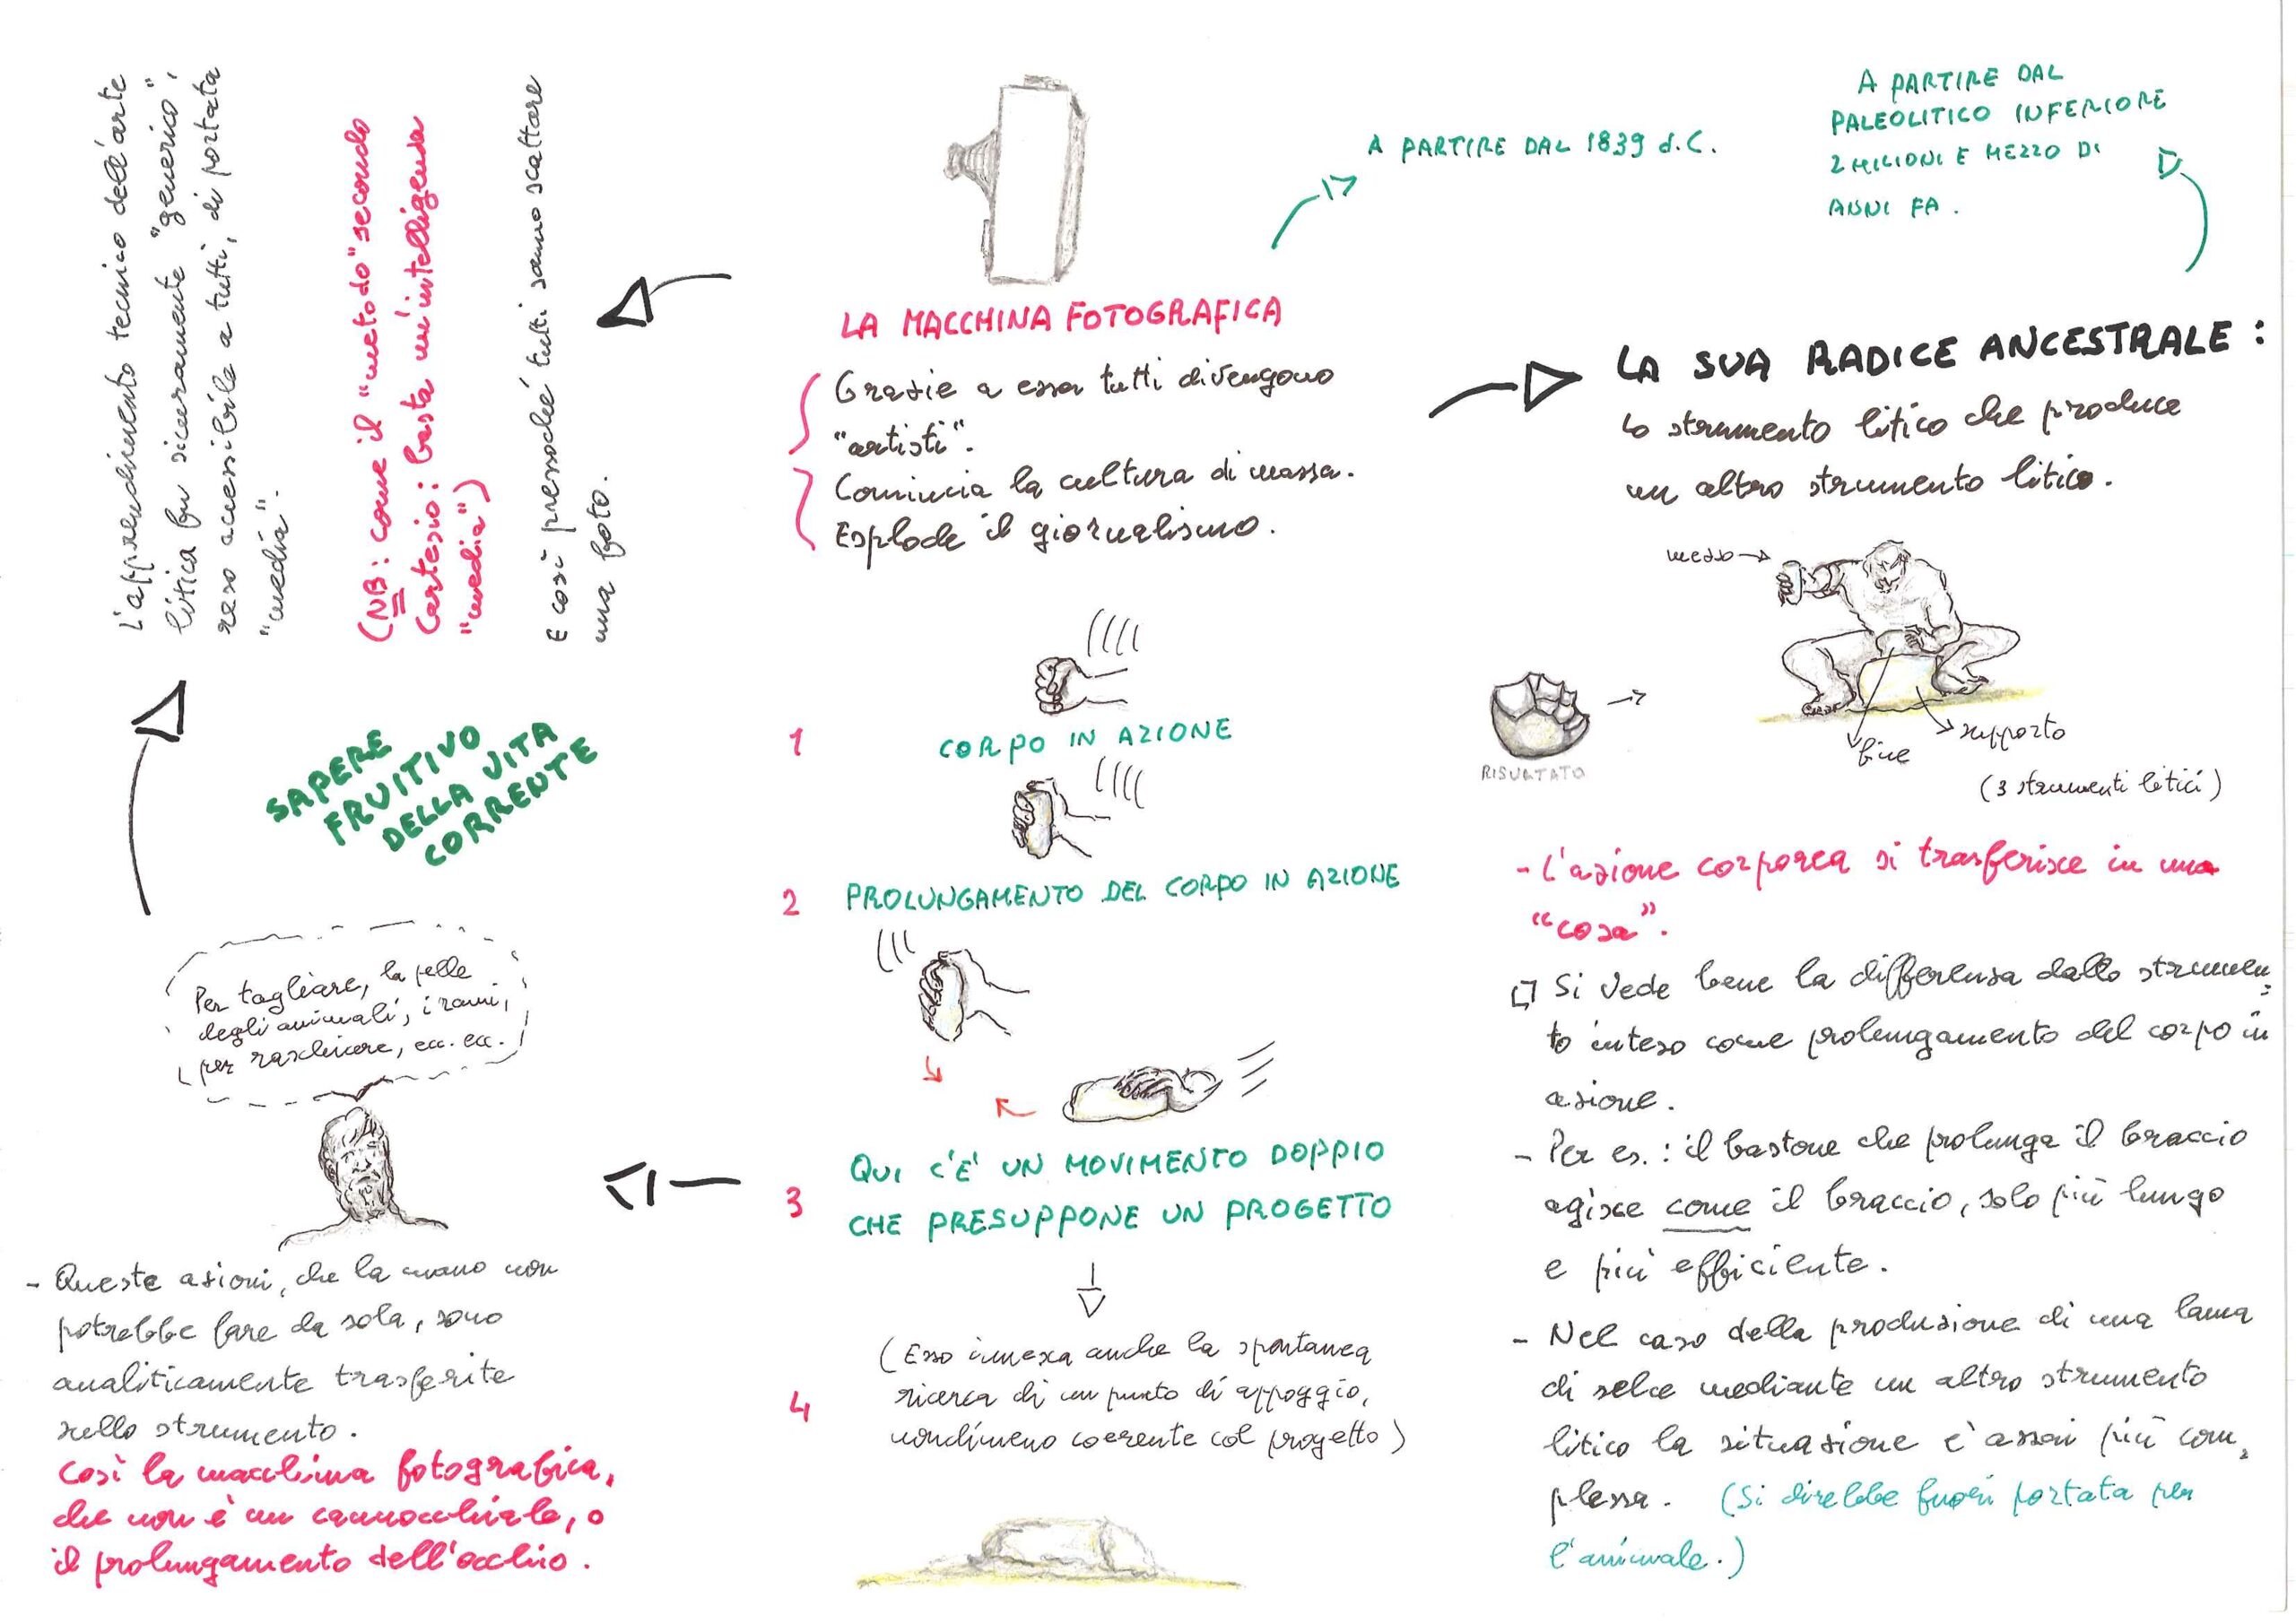 LA MACCHINA FOTOGRAFICA
Grazie a essa tutti divengono
"artisti".
Comincia la cultura di massa.
Esplode il giornalismo.
A PARTIRE DAL 1839 d.C.
A PARTIRE DAL
PALEOLITICO INFERIORE
2 MILIONI E MEZZO DI
ANNI FA.
LA SUA RADICE ANCESTRALE:
Lo strumento litico che produce
un altro strumento litico.
mezzo
RISULTATO
fine
supporto
(3 strumenti litici)
- L'azione corporea si trasferisce in una
"cosa".
Si vede bene la differenza dallo strumen
to inteso come prolungamento del corpo in
azione.
- Per es.: il bastone che prolunga il braccio
agisce come il braccio, solo più lungo
e più efficiente.
- Nel caso della produzione di una lama
di selce mediante un altro strumento
litico la situazione è assai più com
plessa. (Si direbbe fuori portata per
l'animale.)
1 CORPO IN AZIONE
2 PROLUNGAMENTO DEL CORPO IN AZIONE
3 QUI C'E' UN MOVIMENTO DOPPIO
CHE PRESUPPONE UN PROGETTO
4 (Esso innesca anche la spontanea
ricerca di un punto di appoggio,
nondimeno coerente col progetto)
Per tagliare, la pelle
degli animali, i rami,
per raschiare, ecc. ecc.
- Queste azioni, che la mano non
potrebbe fare da sola, sono
analiticamente trasferite
nello strumento.
Così la macchina fotografica,
che non è un cannocchiale, o
il prolungamento dell'occhio.
SAPERE
FRUITIVO
DELLA VITA
CORRENTE
L'apprendimento tecnico dell'arte
litica fu sicuramente "generico",
reso accessibile a tutti, di portata
"media".
(NB: come il "metodo" secondo
Cartesio: basta un'intelligenza
"media")
E così pressoché tutti sanno scattare
una foto.